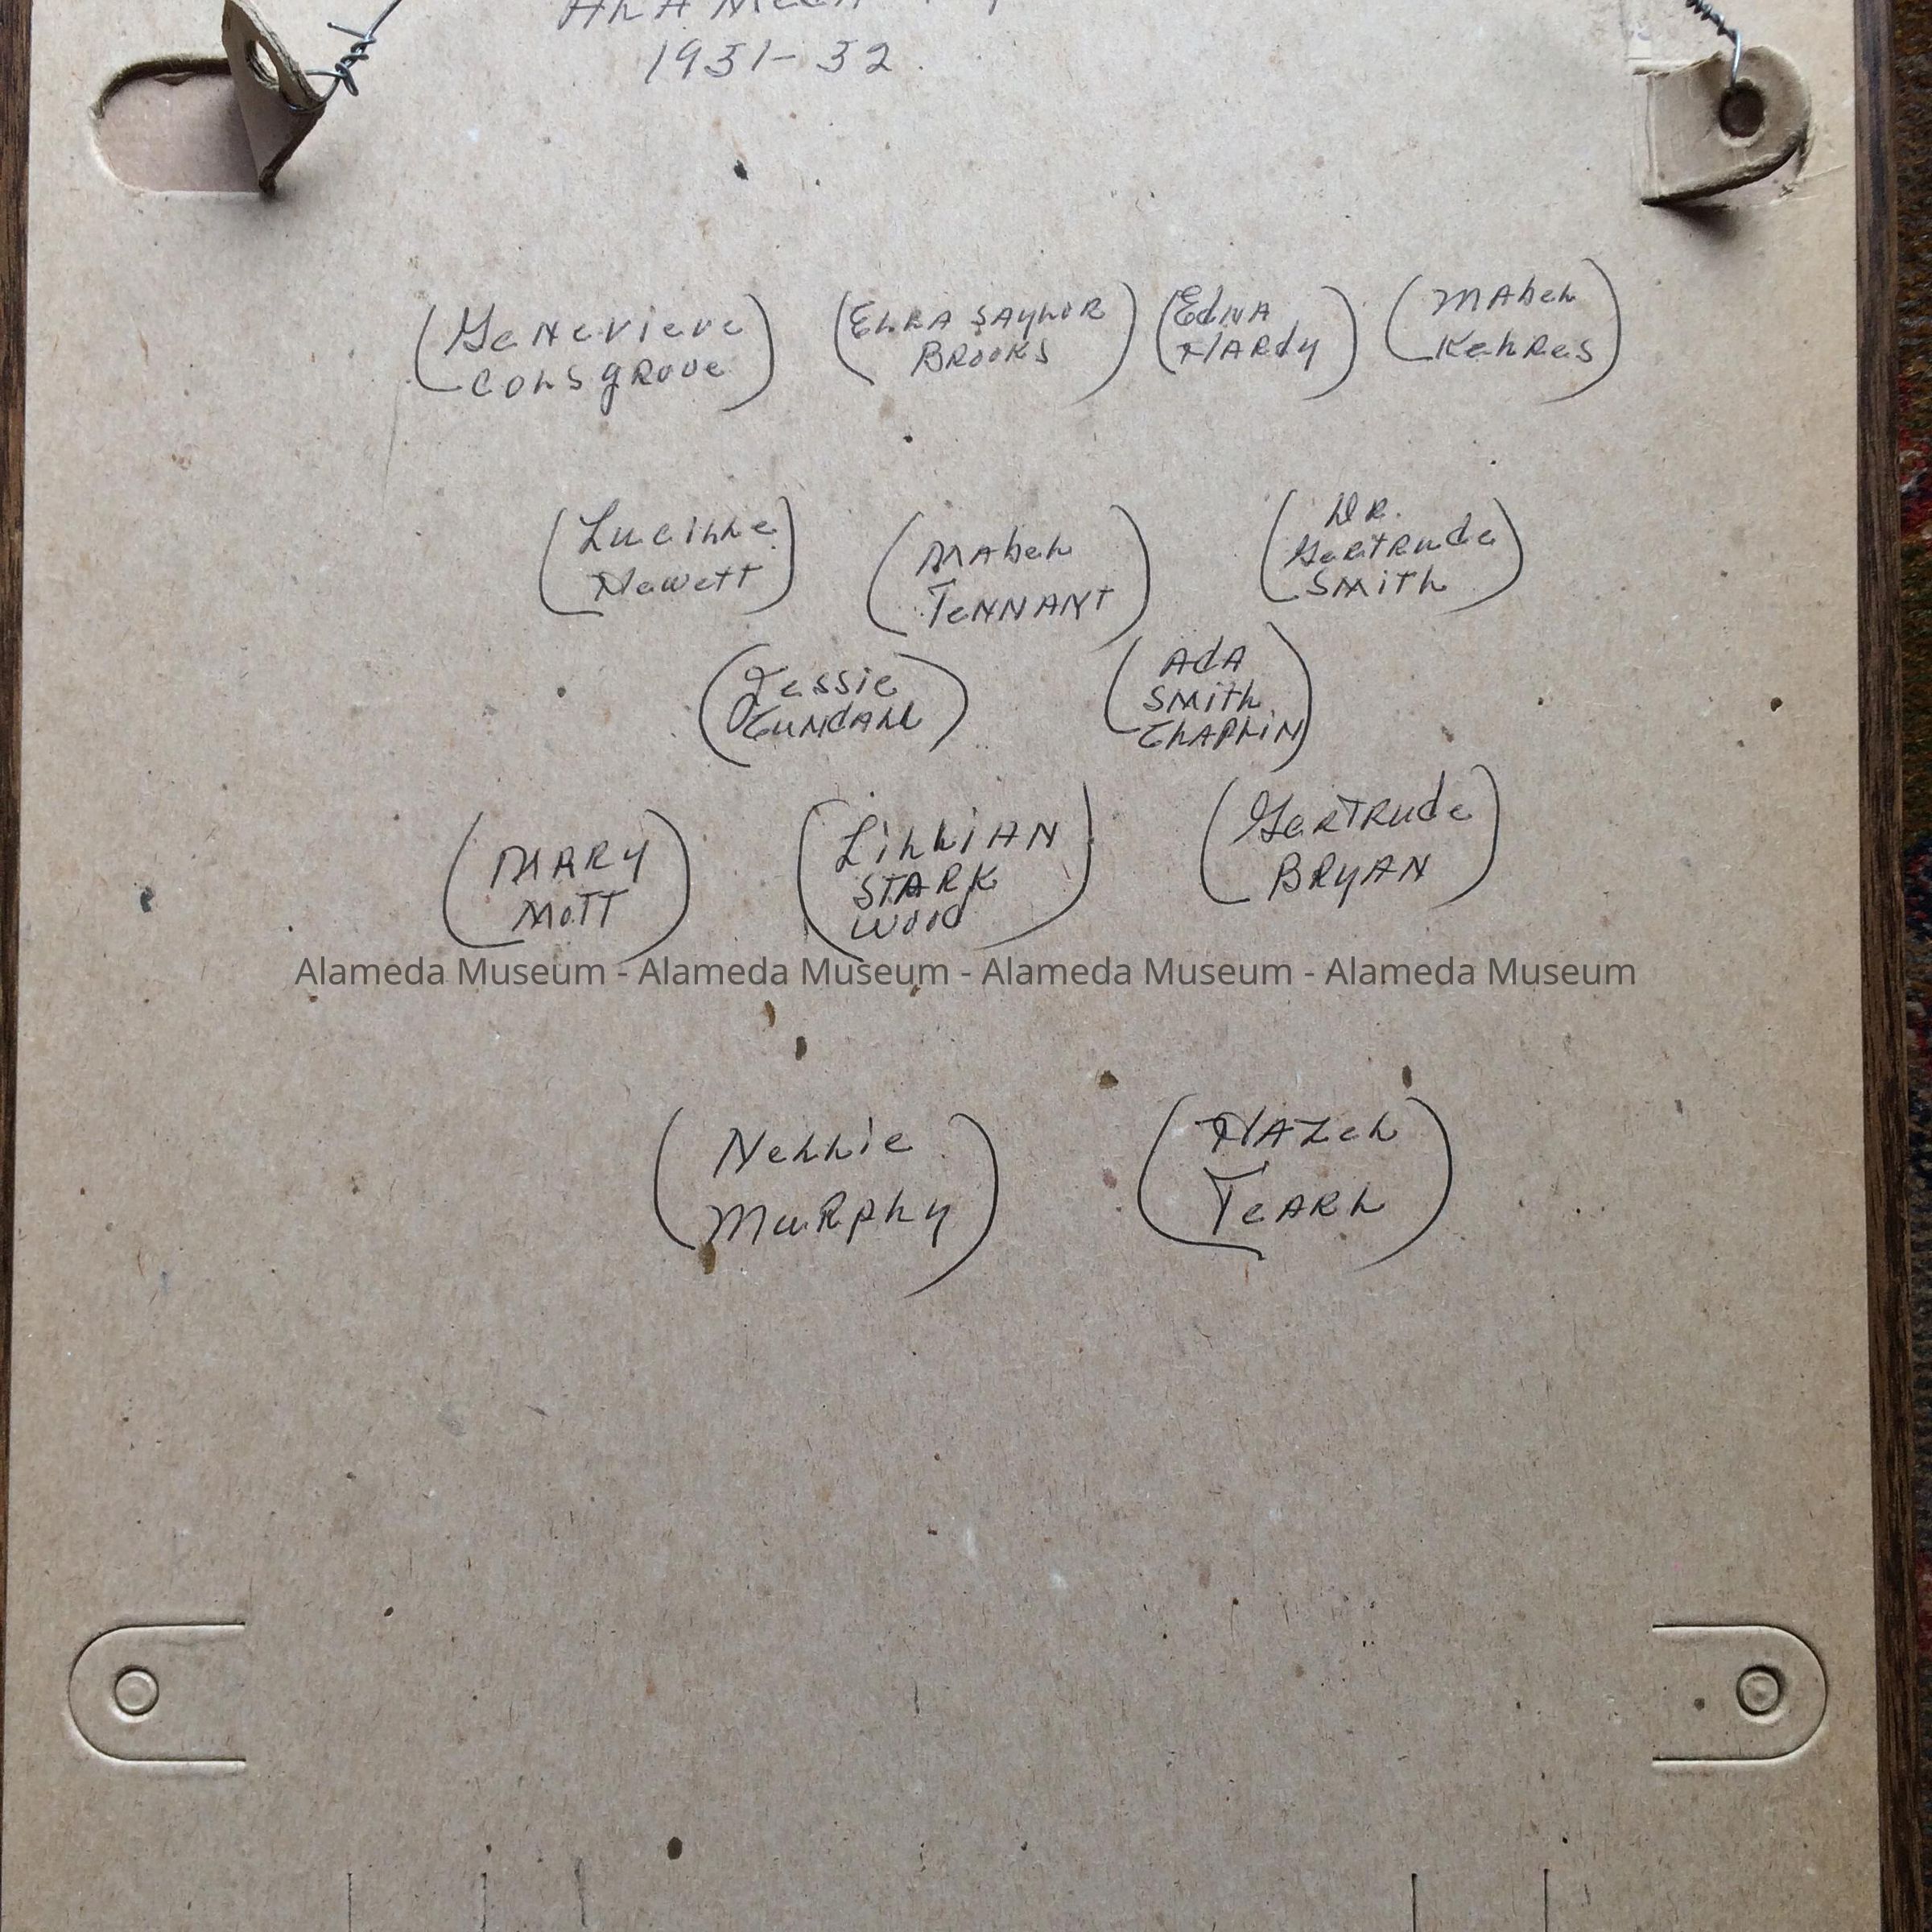 1931-32.
(Genevieve
Colsgrove)
(Ella Saylor
Brooks)
(Edna
Hardy)
(Mabel
Kehres)
(Lucille
Hewett)
(Mabel
Tennant)
(Dr.
Gertrude
Smith)
(Jessie
Cundall)
(Ada
Smith
Chaplin)
(Mary
Mott)
(Lillian
Stark
Wood)
(Gertrude
Bryan)
Alameda Museum - Alameda Museum - Alameda Museum - Alameda Museum
(Nellie
Murphy)
(Hazel
Tearl)